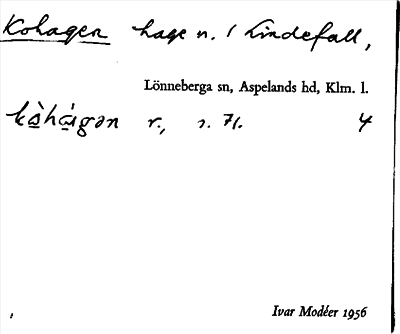 Kohagen hage n. / Lindefall,
Lönneberga sn, Aspelands hd, Klm. l.
kò̱hά̱gən r., s. 71. 4
Ivar Modéer 1956